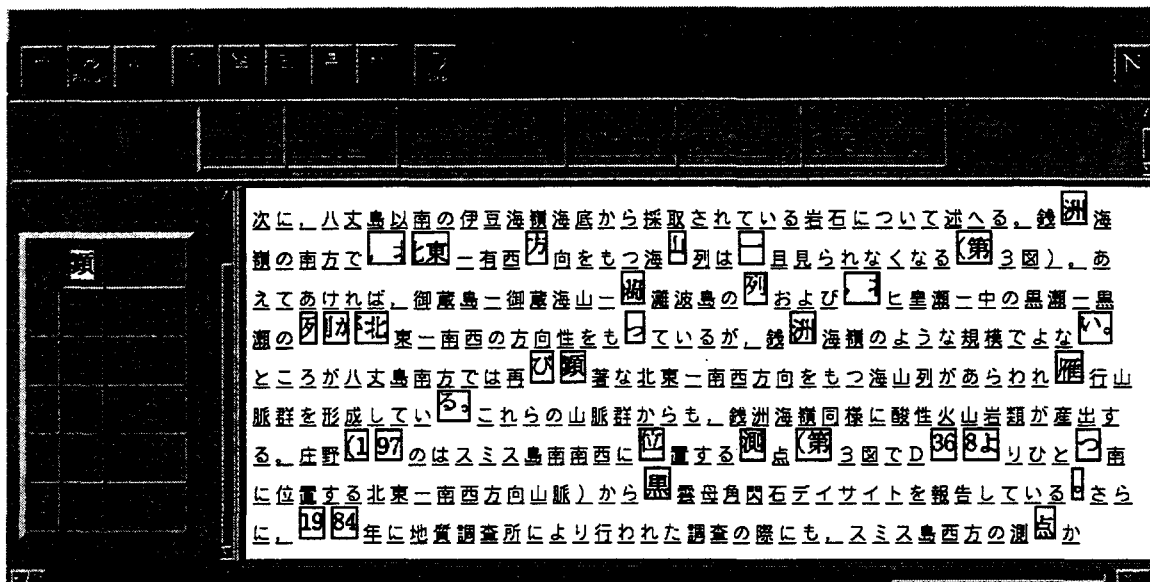 頭
次に，八丈島以南の伊豆海嶺海底から採取されている岩石について述へる．銭洲海
嶺の南方で 北東一有西方向をもつ海山列は一旦見られなくなる(第3図)．あ
えてあければ，御蔵島一御蔵海山一 灘波島の列および ヒ皇瀬一中の黒瀬一黒
瀬の列 北東一南西の方向性をもっているが，銭洲海嶺のような規模でよない。
ところが八丈島南方では再び顕著な北東一南西方向をもつ海山列があらわれ雁行山
脈群を形成している。これらの山脈群からも，銭洲海嶺同様に酸性火山岩類が産出す
る．庄野(197のはスミス島南南西に位置する測点(第3図でD368よりひとつ南
に位置する北東一南西方向山脈)から黒雲母角閃石デイサイトを報告している。さら
に，1984年に地質調査所により行われた調査の際にも，スミス島西方の測点か